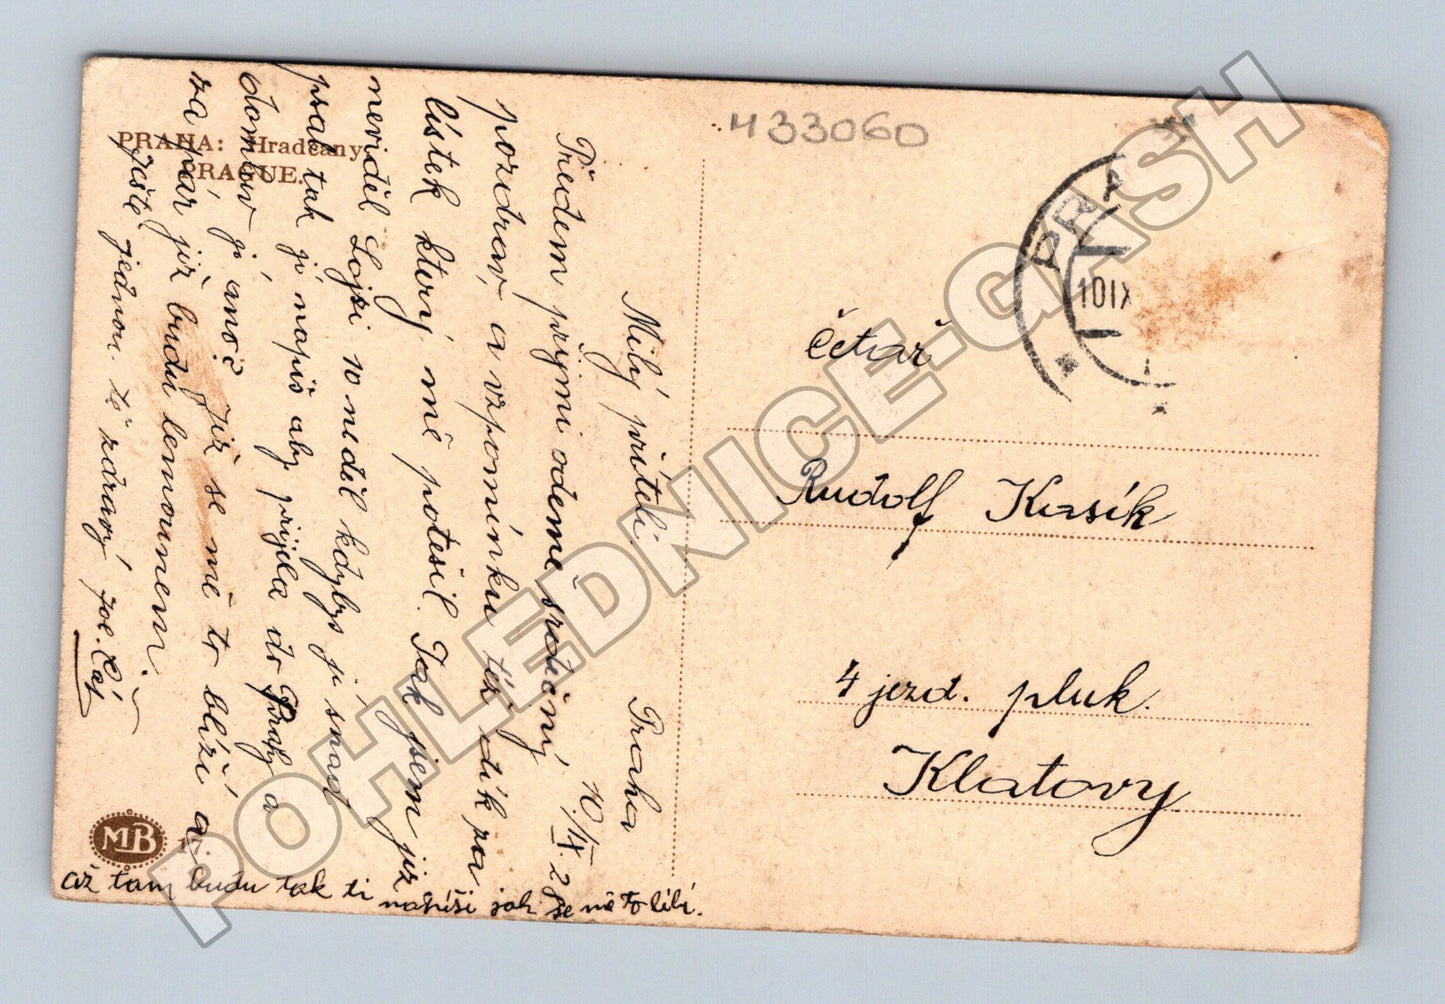 433060
PRAHA: Hradčany
PRAGUE.
PRA
10 IX
Milý příteli
Praha
10./IX. 28
Předem přijmi odemě srdečný
pozdrav, a vzpomínku též dík za
lístek který mě potešil. Tak jsem již
neviděl Lojzi 10 neděl kdybys jí snad
psal tak jí napiš aby přijela do Prahy a
domluv jí ano? Již se mě to blíží a
za pár již budu
ještě jednou tě zdraví
až tam budu tak ti napíši jak se mě to líbí.
četař
Rudolf
4 jezd. pluk.
Klatovy
MB
17.
POHLEDNICE-GASH